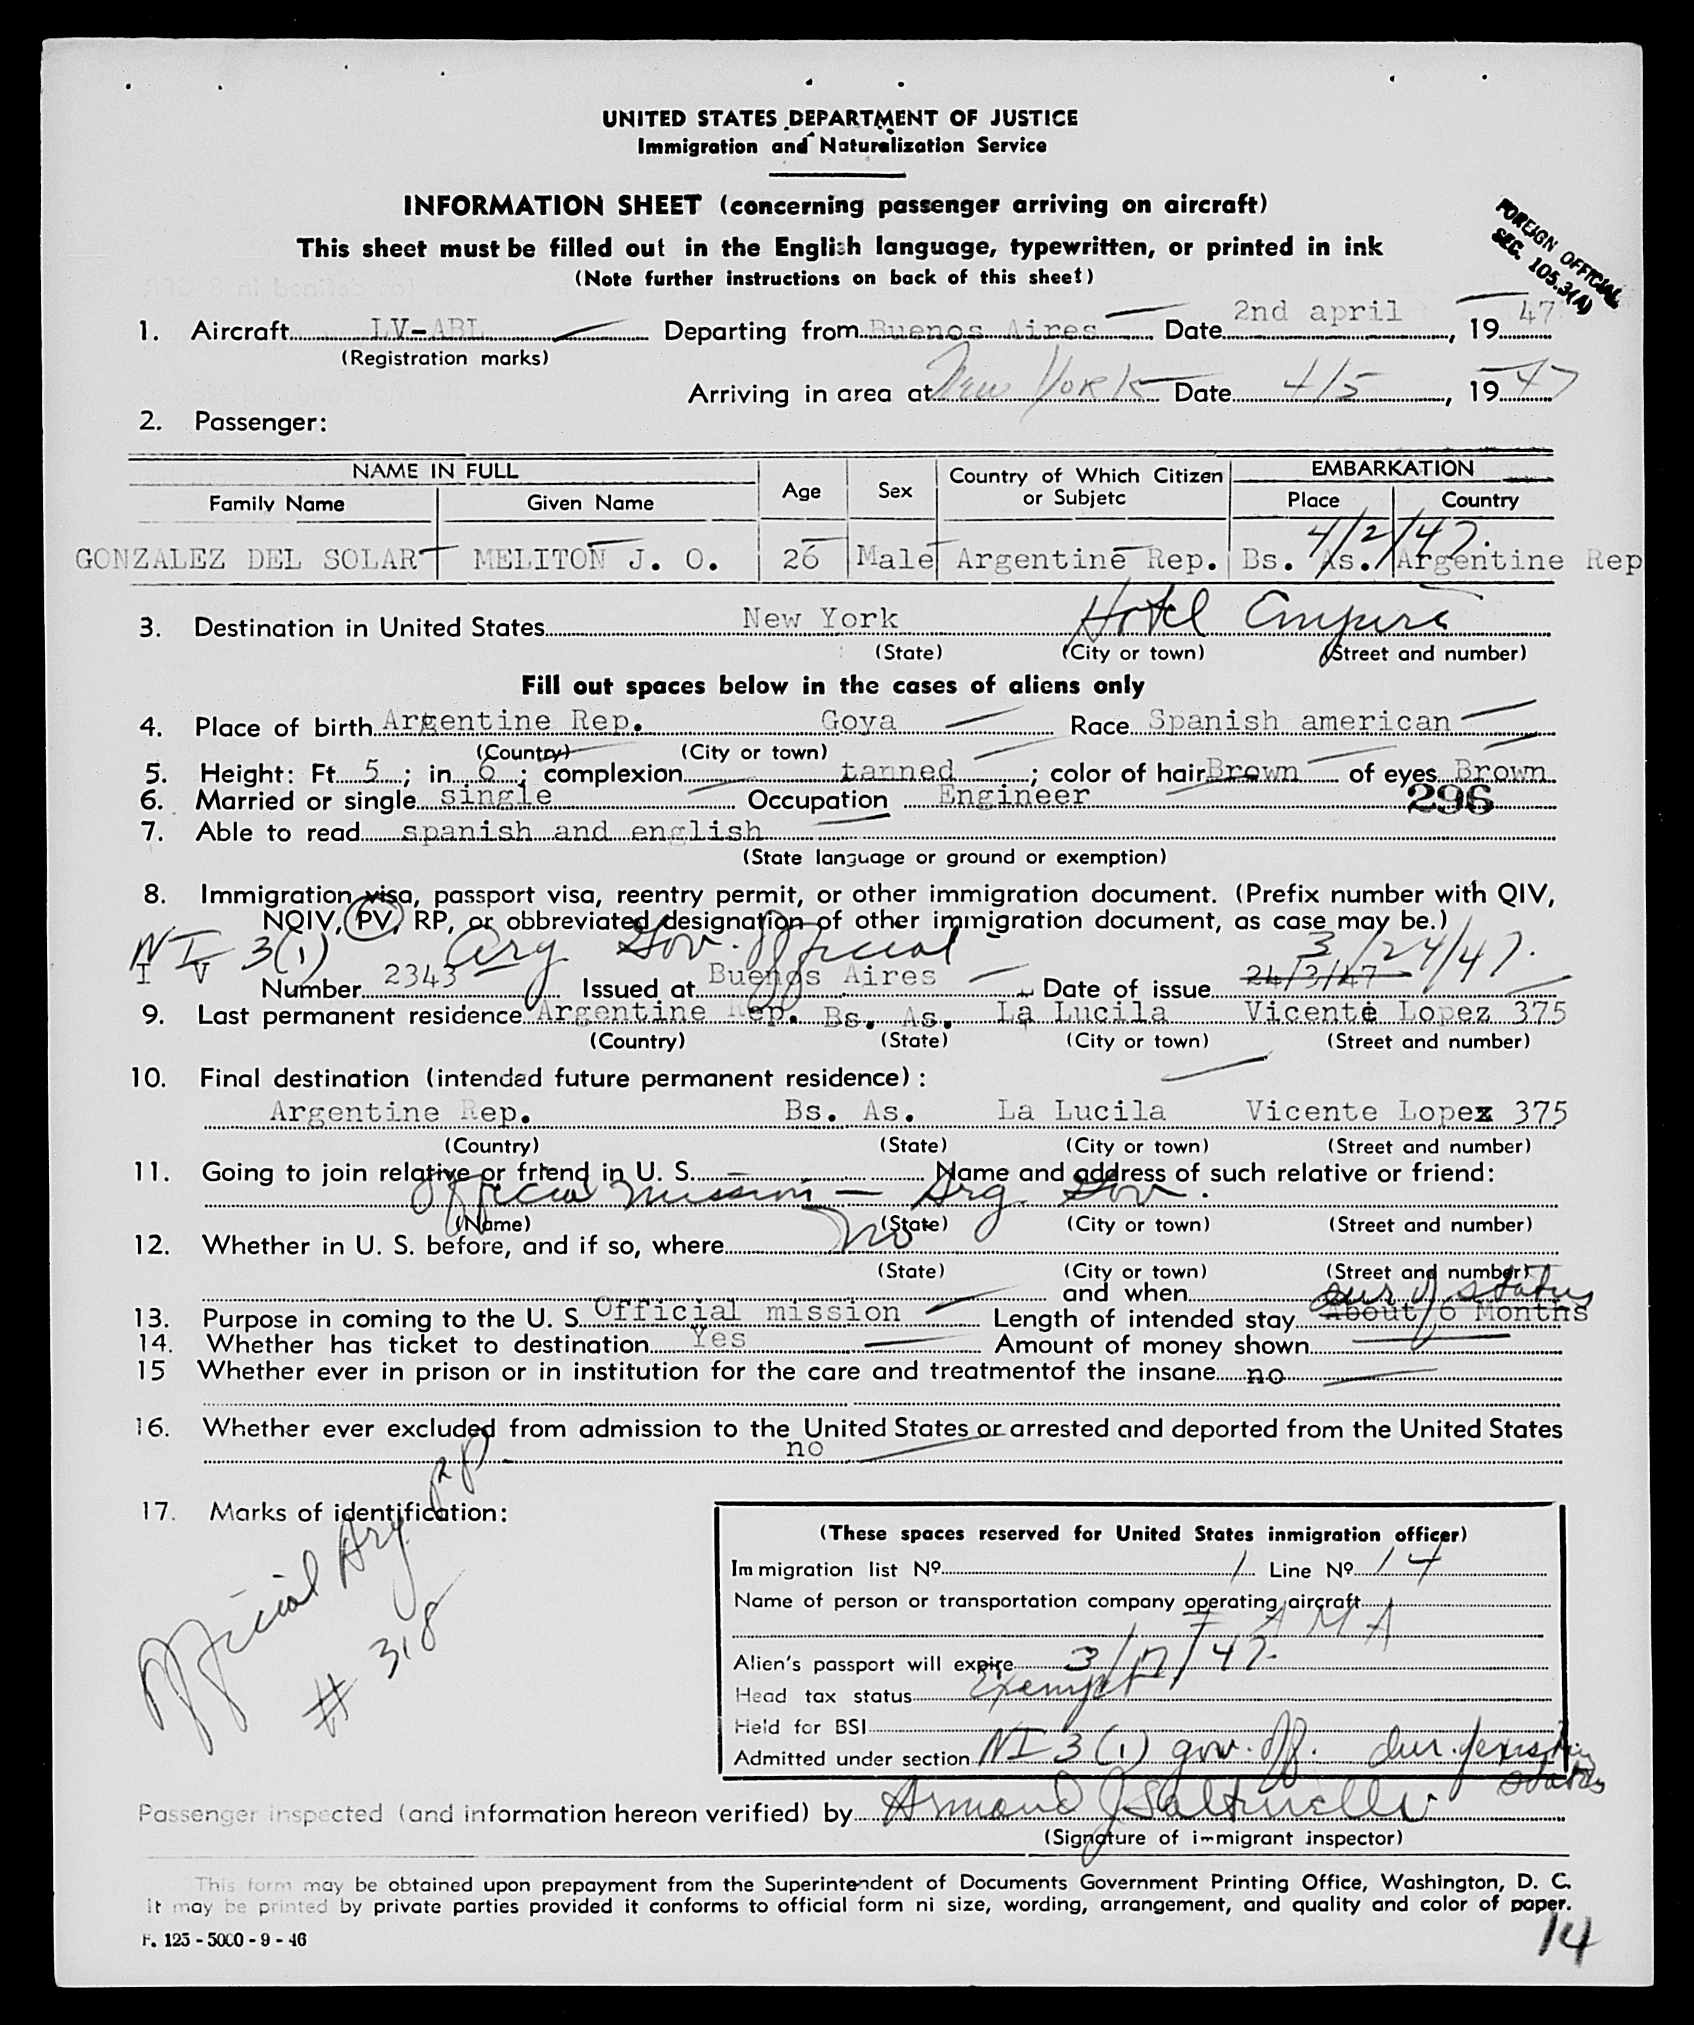 UNITED STATES DEPARTMENT OF JUSTICE
Immigration and Naturalization Service
INFORMATION SHEET (concerning passenger arriving on aircraft)
This sheet must be filled out in the English language, typewritten, or printed in ink
(Note further instructions on back of this sheet)
FOREIGN OFFICIAL
SEC. 105.3(A)
1. Aircraft LV-ABL Departing from Buenos Aires Date 2nd april, 1947
(Registration marks)
Arriving in area at New York Date 4/5, 1947
2. Passenger:
NAME IN FULL EMBARKATION
Family Name Given Name Age Sex Country of Which Citizen or Subjetc Place Country
4/2/47.
GONZALEZ DEL SOLAR MELITON J. O. 26 Male Argentine Rep. Bs. As. Argentine Rep
3. Destination in United States New York Hotel Empire
(State) (City or town) (Street and number)
Fill out spaces below in the cases of aliens only
4. Place of birth Argentine Rep. Goya Race Spanish american
(Country) (City or town)
5. Height: Ft. 5; in. 6; complexion tanned; color of hair Brown of eyes Brown
6. Married or single single Occupation Engineer 296
7. Able to read spanish and english
(State language or ground or exemption)
8. Immigration visa, passport visa, reentry permit, or other immigration document. (Prefix number with QIV,
NQIV, PV, RP, or obbreviated designation of other immigration document, as case may be.)
NI 3(1) Arg Gov. Official 3/24/47.
I V Number 2343 Issued at Buenos Aires Date of issue 24/3/47
9. Last permanent residence Argentine Rep. Bs. As. La Lucila Vicente Lopez 375
(Country) (State) (City or town) (Street and number)
10. Final destination (intended future permanent residence):
Argentine Rep. Bs. As. La Lucila Vicente Lopez 375
(Country) (State) (City or town) (Street and number)
11. Going to join relative or friend in U. S. Name and address of such relative or friend:
Official Mission — Arg. Gov.
(Name) (State) (City or town) (Street and number)
12. Whether in U. S. before, and if so, where No
(State) (City or town) (Street and number)
and when dur of status
13. Purpose in coming to the U. S. Official mission Length of intended stay About 6 Months
14. Whether has ticket to destination Yes Amount of money shown
15 Whether ever in prison or in institution for the care and treatmentof the insane no
16. Whether ever excluded from admission to the United States or arrested and deported from the United States
no
17. Marks of identification:
Official Arg. PP
# 318
(These spaces reserved for United States inmigration officer)
Immigration list Nº 1 Line Nº 14
Name of person or transportation company operating aircraft
F A M A
Alien's passport will expire 3/17/47
Head tax status Exempt
Held for BSI
Admitted under section NI 3(1) gov. off. dur. of status
Passenger inspected (and information hereon verified) by Armand J
(Signature of immigrant inspector)
This form may be obtained upon prepayment from the Superintendent of Documents Government Printing Office, Washington, D. C.
it may be printed by private parties provided it conforms to official form ni size, wording, arrangement, and quality and color of paper.
F. 125 - 5000 - 9 - 46
14